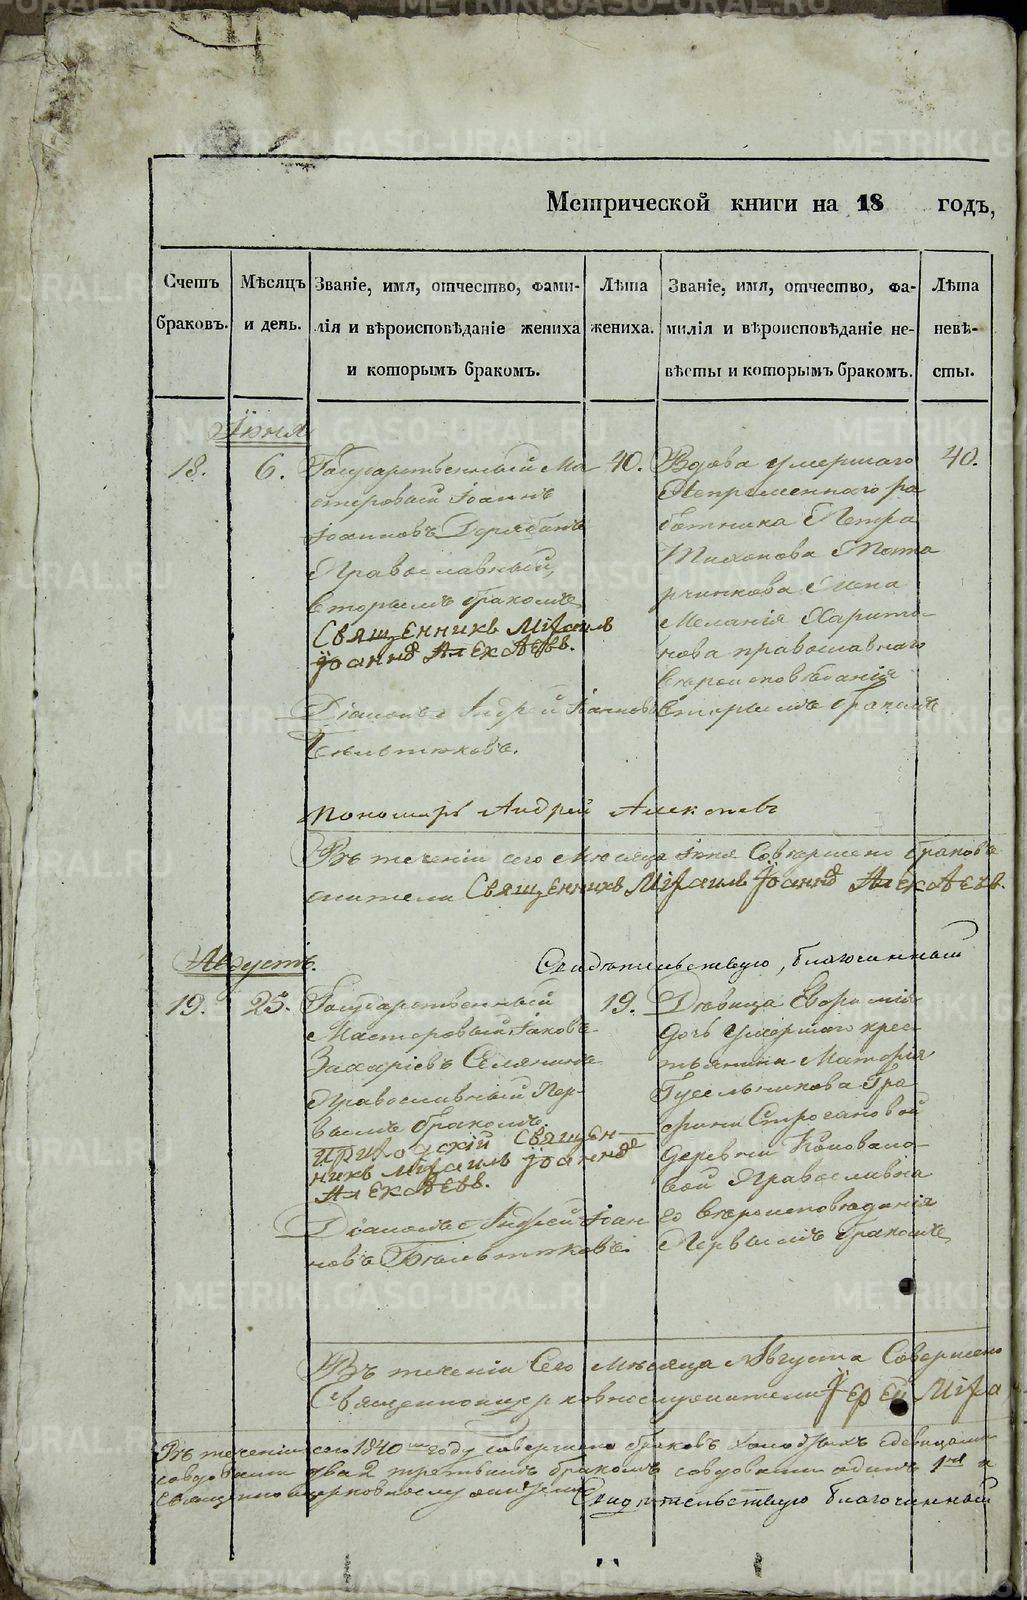 Метрической книги на 18 годъ,
Счетъ браковъ.
Мѣсяцъ и день.
Званіе, имя, отчество, фами-
лія и вѣроисповѣданіе жениха
и которымъ бракомъ.
Лѣта
жениха.
Званіе, имя, отчество, фа-
милія и вѣроисповѣданіе не-
вѣсты и которымъ бракомъ.
Лѣта
невѣ-
сты.
Іюня
18.
6.
Государственный Ма
стеровый Іоаннъ
Іоанновъ
Православный,
вторымъ бракомъ
Священникъ Міхаилъ
Іоаннѡ Алексѣевъ.
Діаконъ Андрей Іоанновъ
40.
Вдова умершаго
Непременнаго ра
ботника Петра
Тихонова
жена
Меланія Харито-
нова православнаго
вѣроисповѣданія
вторымъ бракомъ
40.
Пономарь Андрей Алексѣевъ
Въ теченіи сего Мѣсяца Іюня Совершено браковъ
Священникъ Міхаилъ Іоаннѡ Алексѣевъ.
Свидѣтельствую, благочинный
Августъ.
19.
25.
Государственный
Мастеровый Іаковъ
Захаріевъ Селянинъ
Православный Пер-
вымъ бракомъ.
Приходскій Священ-
никъ Міхаилъ Іоаннѡ
Алексѣевъ.
Діаконъ Андрей Іоан
новъ
19.
Дѣвица
дочь умершаго крес-
тьянина
Гусельникова Гра
фини Строгановой
деревни
вой Православна
го вѣроисповѣданія
Первымъ бракомъ
Въ теченіи Сего Мѣсяца Августа Совершено
Священноцерковнослужители Іерей Міха
Въ теченіи сего 1840 году совершено браковъ холостыхъ съ девицами
совдовами два 2 третьимъ бракомъ совдовами одинъ
священноцерковнослужители
Свидѣтельствую благочинный
METRIKI.GASO-URAL.RU